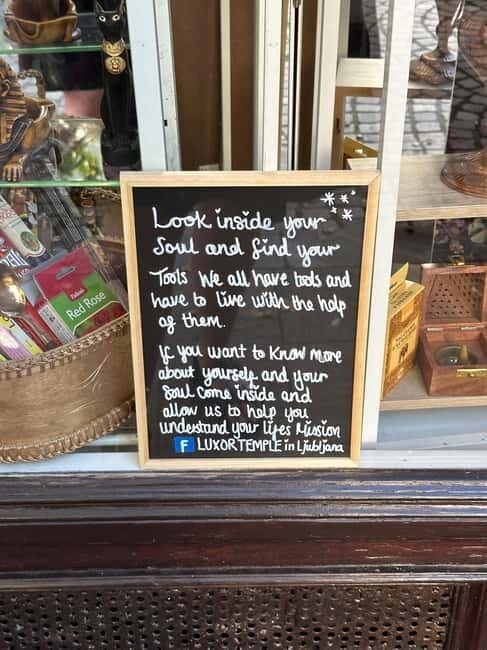 Look inside your
Soul and find your
Tools We all have tools and
have to live with the help
of them.
If you want to know more
about yourself and your
Soul come inside and
allow us to help you
understand your lifes Mission
F LUXOR TEMPLE in Ljubljana
Red Rose